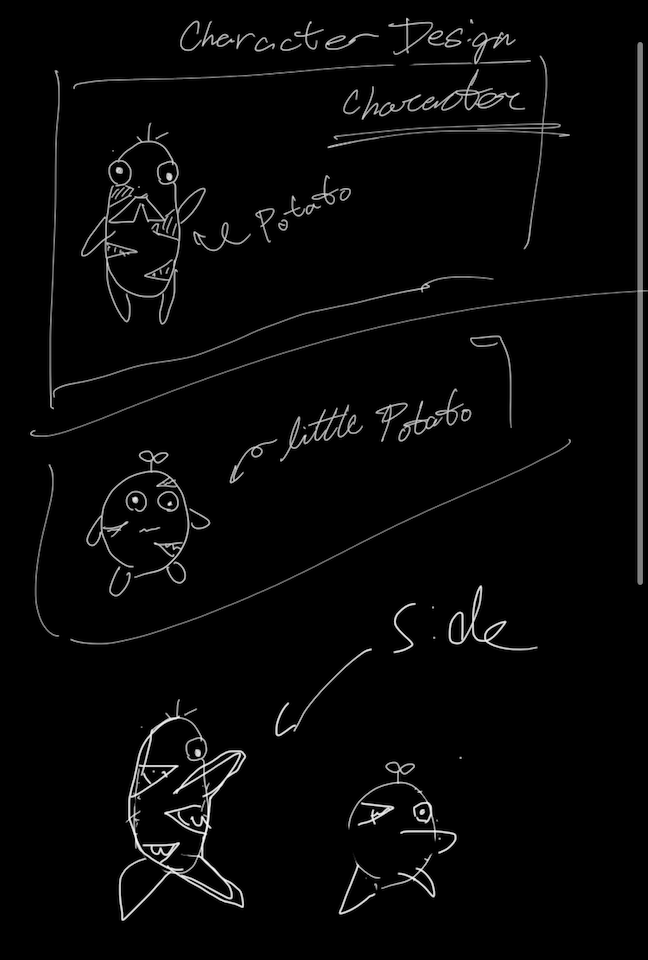 Character Design
Character
Potato
little Potato
Side